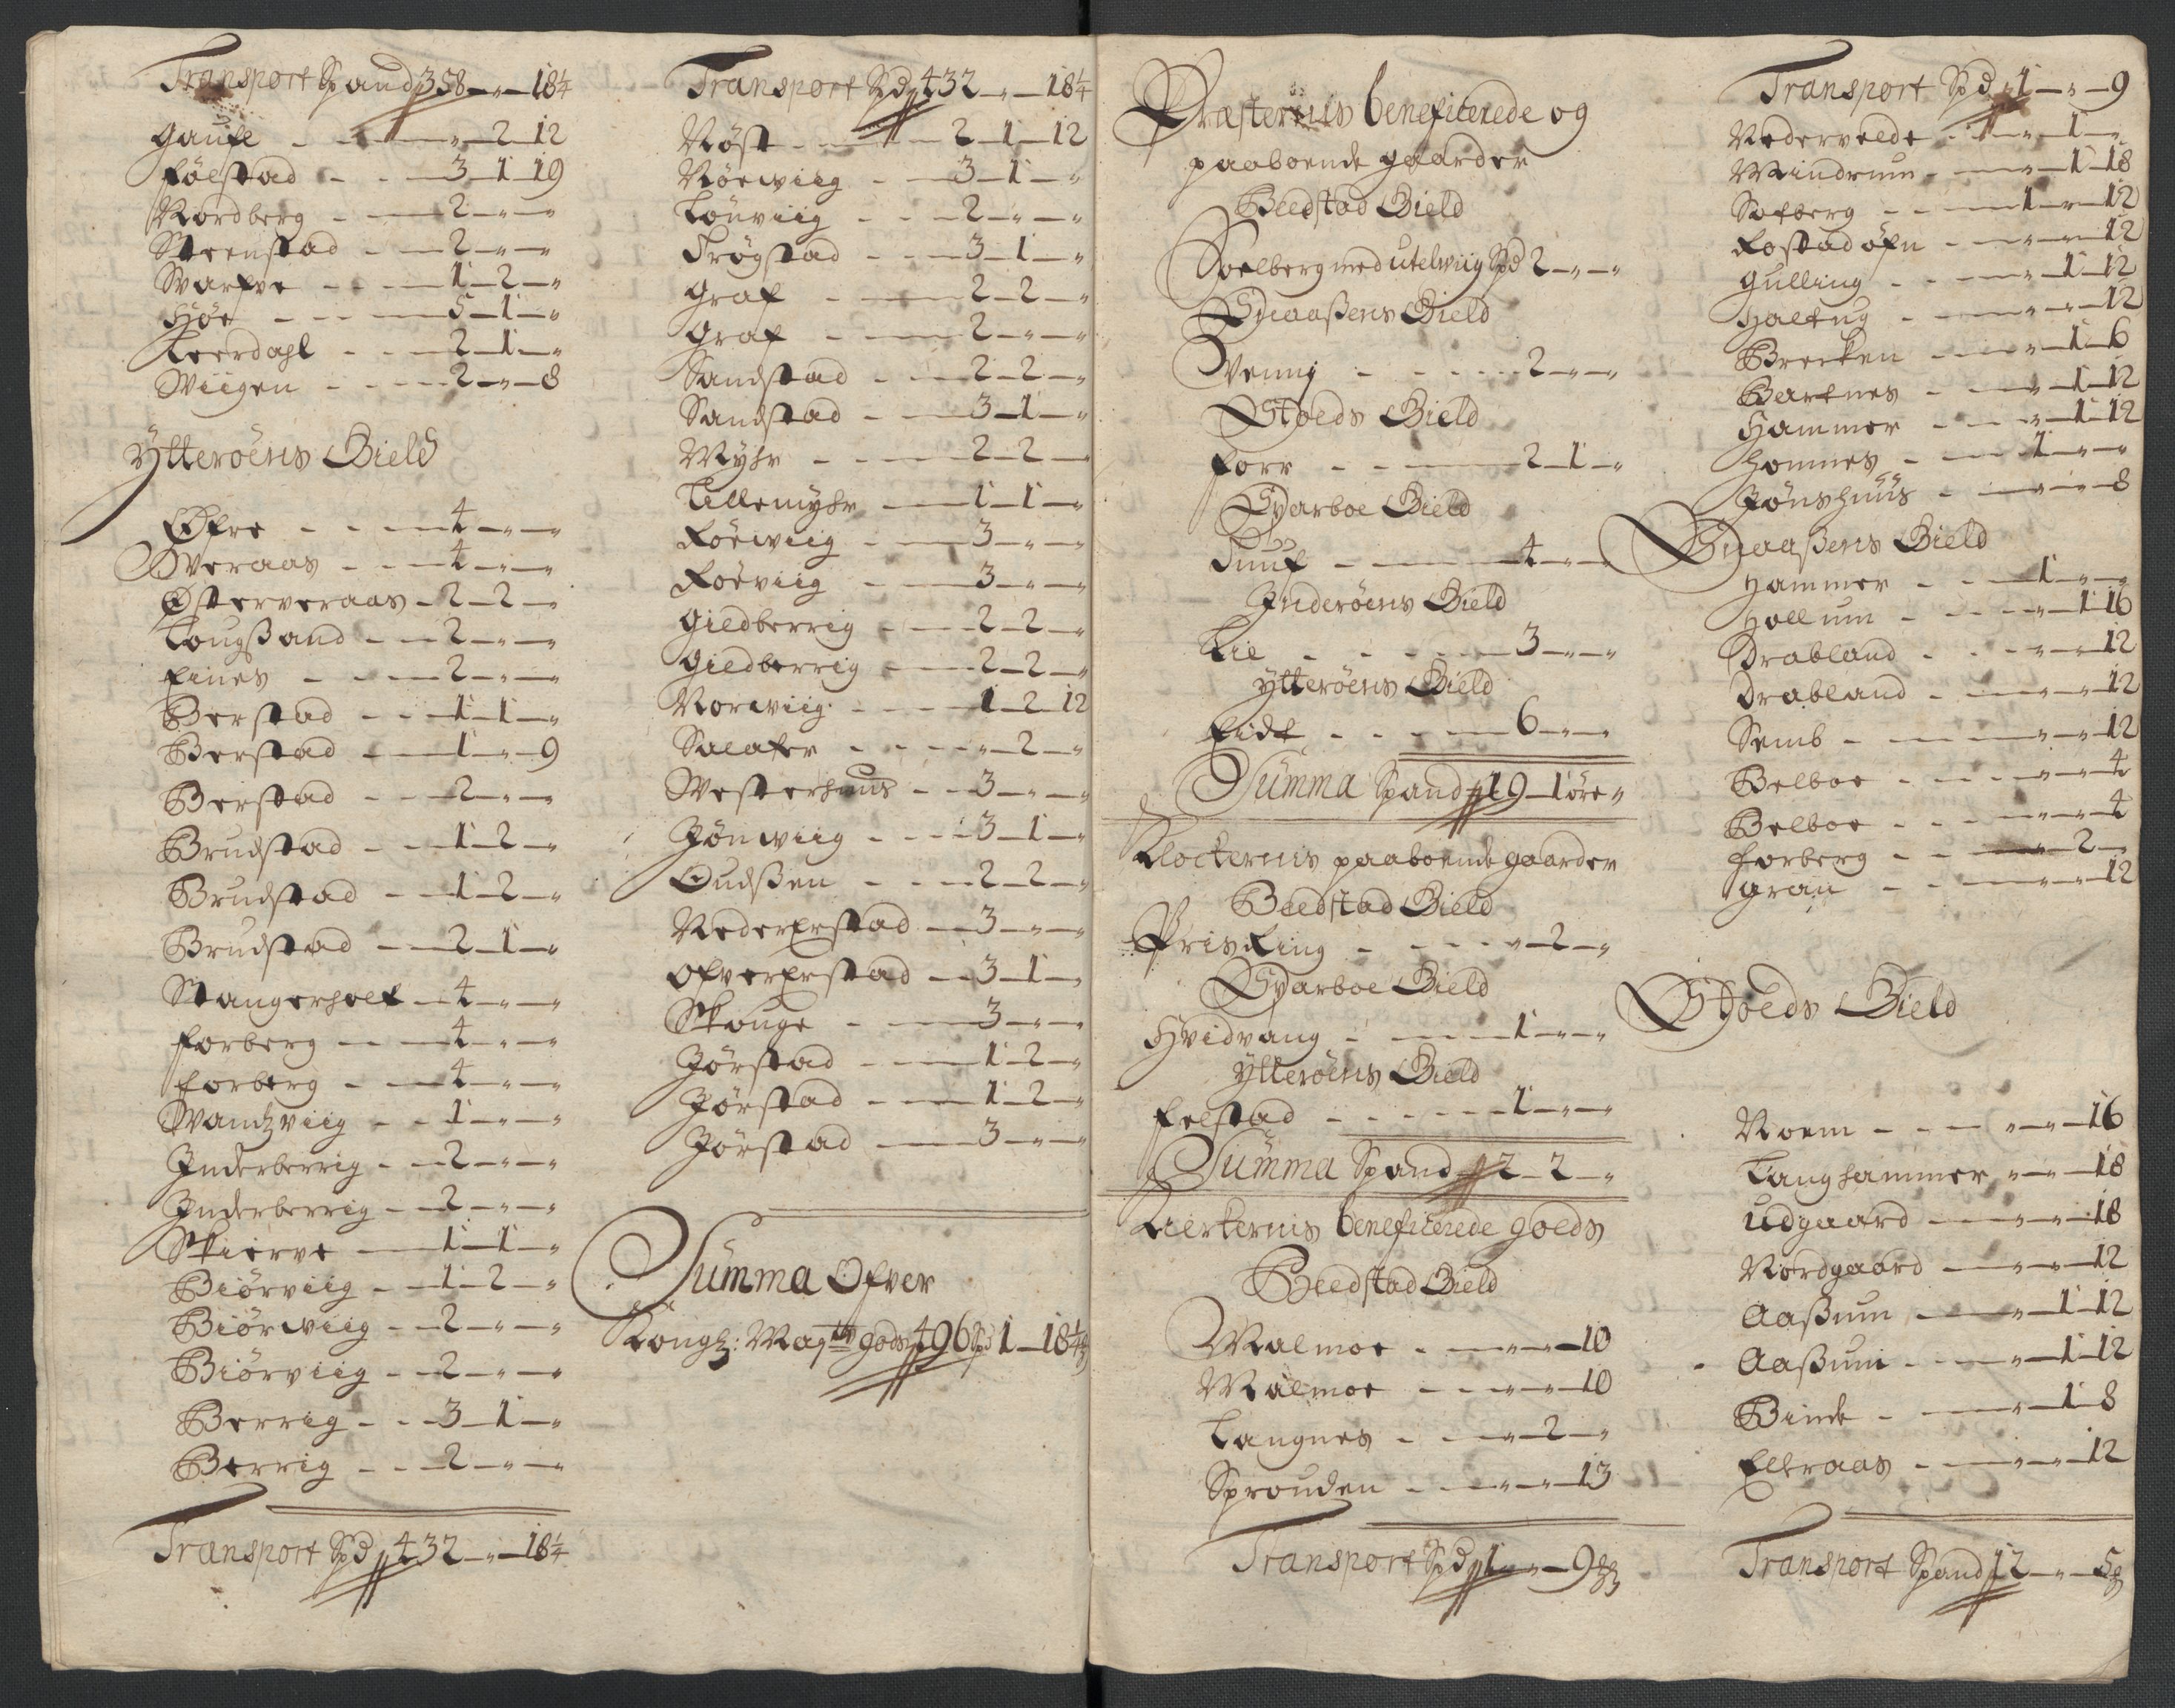 Transport Spand 358 — „ — 18¼
Gaufl — „ — 2 — 12
Følstad — 3 — 1 — 19
Nordberg — 2 — „ — „
Steenstad — 2 — „ — „
Swarfve — 1 — 2 — „
Høe — 5 — 1 — „
Leerdahl — 2 — 1 — „
Wiigen — 2 — „ — 8
Ytterøens Gield
Øfre — 4 — „ — „
Overaas — 4 — „ — „
Østerveraas — 2 — 2 — „
Tougsand — 2 — „ — „
Fines — 2 — „ — „
Berstad — 1 — 1 — „
Berstad — 1 — „ — 9
Berstad — 2 — „ — „
Brudstad — 1 — 2 — „
Brudstad — 1 — 2 — „
Brudstad — 2 — 1 — „
Stangerholt — 4 — „ — „
Forberg — 4 — „ — „
Forberg — 4 — „ — „
Wandzviig — 1 — „ — „
Inderberrig — 2 — „ — „
Inderberrig — 2 — „ — „
Skierve — 1 — 1 — „
Biørviig — 1 — 2 — „
Biørwiig — 2 — „ — „
Biørviig — 2 — „ — „
Berrig — 3 — 1 — „
Berrig — 2 — „ — „
Transport Spd 432 — „ — 18¼
Transport Spd 432 — „ — 18¼
Røst — 2 — 1 — 12
Rørwiig — 3 — 1 — „
Lønviig — 2 — „ — „
Frøgstad — 3 — 1 — „
Graf — 2 — 2 — „
Graf — 2 — „ — „
Sandstad — 2 — 2 — „
Sandstad — 3 — 1 — „
Myhr — 2 — 2 — „
Lillemyhr — 1 — 1 — „
Rørwiig — 3 — „ — „
Rørviig — 3 — „ — „
Giedberrig — 2 — 2 — „
Giedberrig — 2 — 2 — „
Norwiig — 1 — 2 — 12
Salater — „ — 2 — „
Westerhuus — 3 — „ — „
Jønwiig — 3 — 1 — „
Oudssen — 2 — 2 — „
Nederkrstad — 3 — „ — „
Ofverkrstad — 3 — 1 — „
Skouge — 3 — „ — „
Jørstad — 1 — 2 — „
Jørstad — 1 — 2 — „
Jørstad — 3 — „ — „
Summa Ofver
Kongl: Maÿts gods 496 Spd 1 — 18¼
Præsternis benefiterede og
paaboende gaarder
Beedstad Gield
Soelberg med utelwiig Spd 2 — „ — „
Snaaßens Gield
Wennj — 2 — „ — „
Stoeds Gield
Forr — 2 — 1 — „
Sparboe Gield
Tuuf — 4 — „ — „
Inderøens Gield
Lie — 3 — „ — „
Ytterøens Gield
Eide — 6 — „ — „
Summa Spand 19 — 1 øre „
Klockernis paaboende gaarder
Beedstad Gield
Prisling — „ — 2 — „
Sparboe Gield
Hvidvang — 1 — „ — „
Ytterøens Gield
Felstad — 1 — „ — „
Summa Spand 2 — 2 — „
Kierkernis benefiterede goeds
Beedstad Gield
Malmoe — „ — „ — 10
Malmoe — „ — „ — 10
Langnes — „ — 2 — „
Sprouden — „ — „ — 13
Transport Spd 1 — „ — 9
Transport Spd 1 — „ — 9
Nedervelde — „ — 1 — „
Mindrum — „ — 1 — 18
Solberg — 1 — „ — 12
Rostadøfn — „ — „ — 12
Gulling — „ — 1 — 12
Haltug — „ — „ — 12
Brecken — „ — 1 — 6
Bartnes — „ — 1 — 12
Hammer — „ — 1 — 12
Homnes — 1 — „ — „
Jønshuus — „ — „ — 8
Snaaßens Gield
Hammer — 1 — „ — „
Hollum — „ — 1 — 16
Drabland — „ — „ — 12
Drabland — „ — „ — 12
Semb — „ — „ — 12
Belboe — „ — „ — 4
Belboe — „ — „ — 4
Forberg — „ — 2 — „
Gran — „ — „ — 12
Stoeds Gield
Roem — „ — „ — 16
Langhammer „ — „ — 18
Udgaard — „ — „ — 18
Nordgaard — „ — „ — 12
Aaßum — „ — 1 — 12
Aaßum — „ — 1 — 12
Binde — „ — 1 — 8
Elkraas — „ — „ — 12
Transport Spand 12 — „ — 5